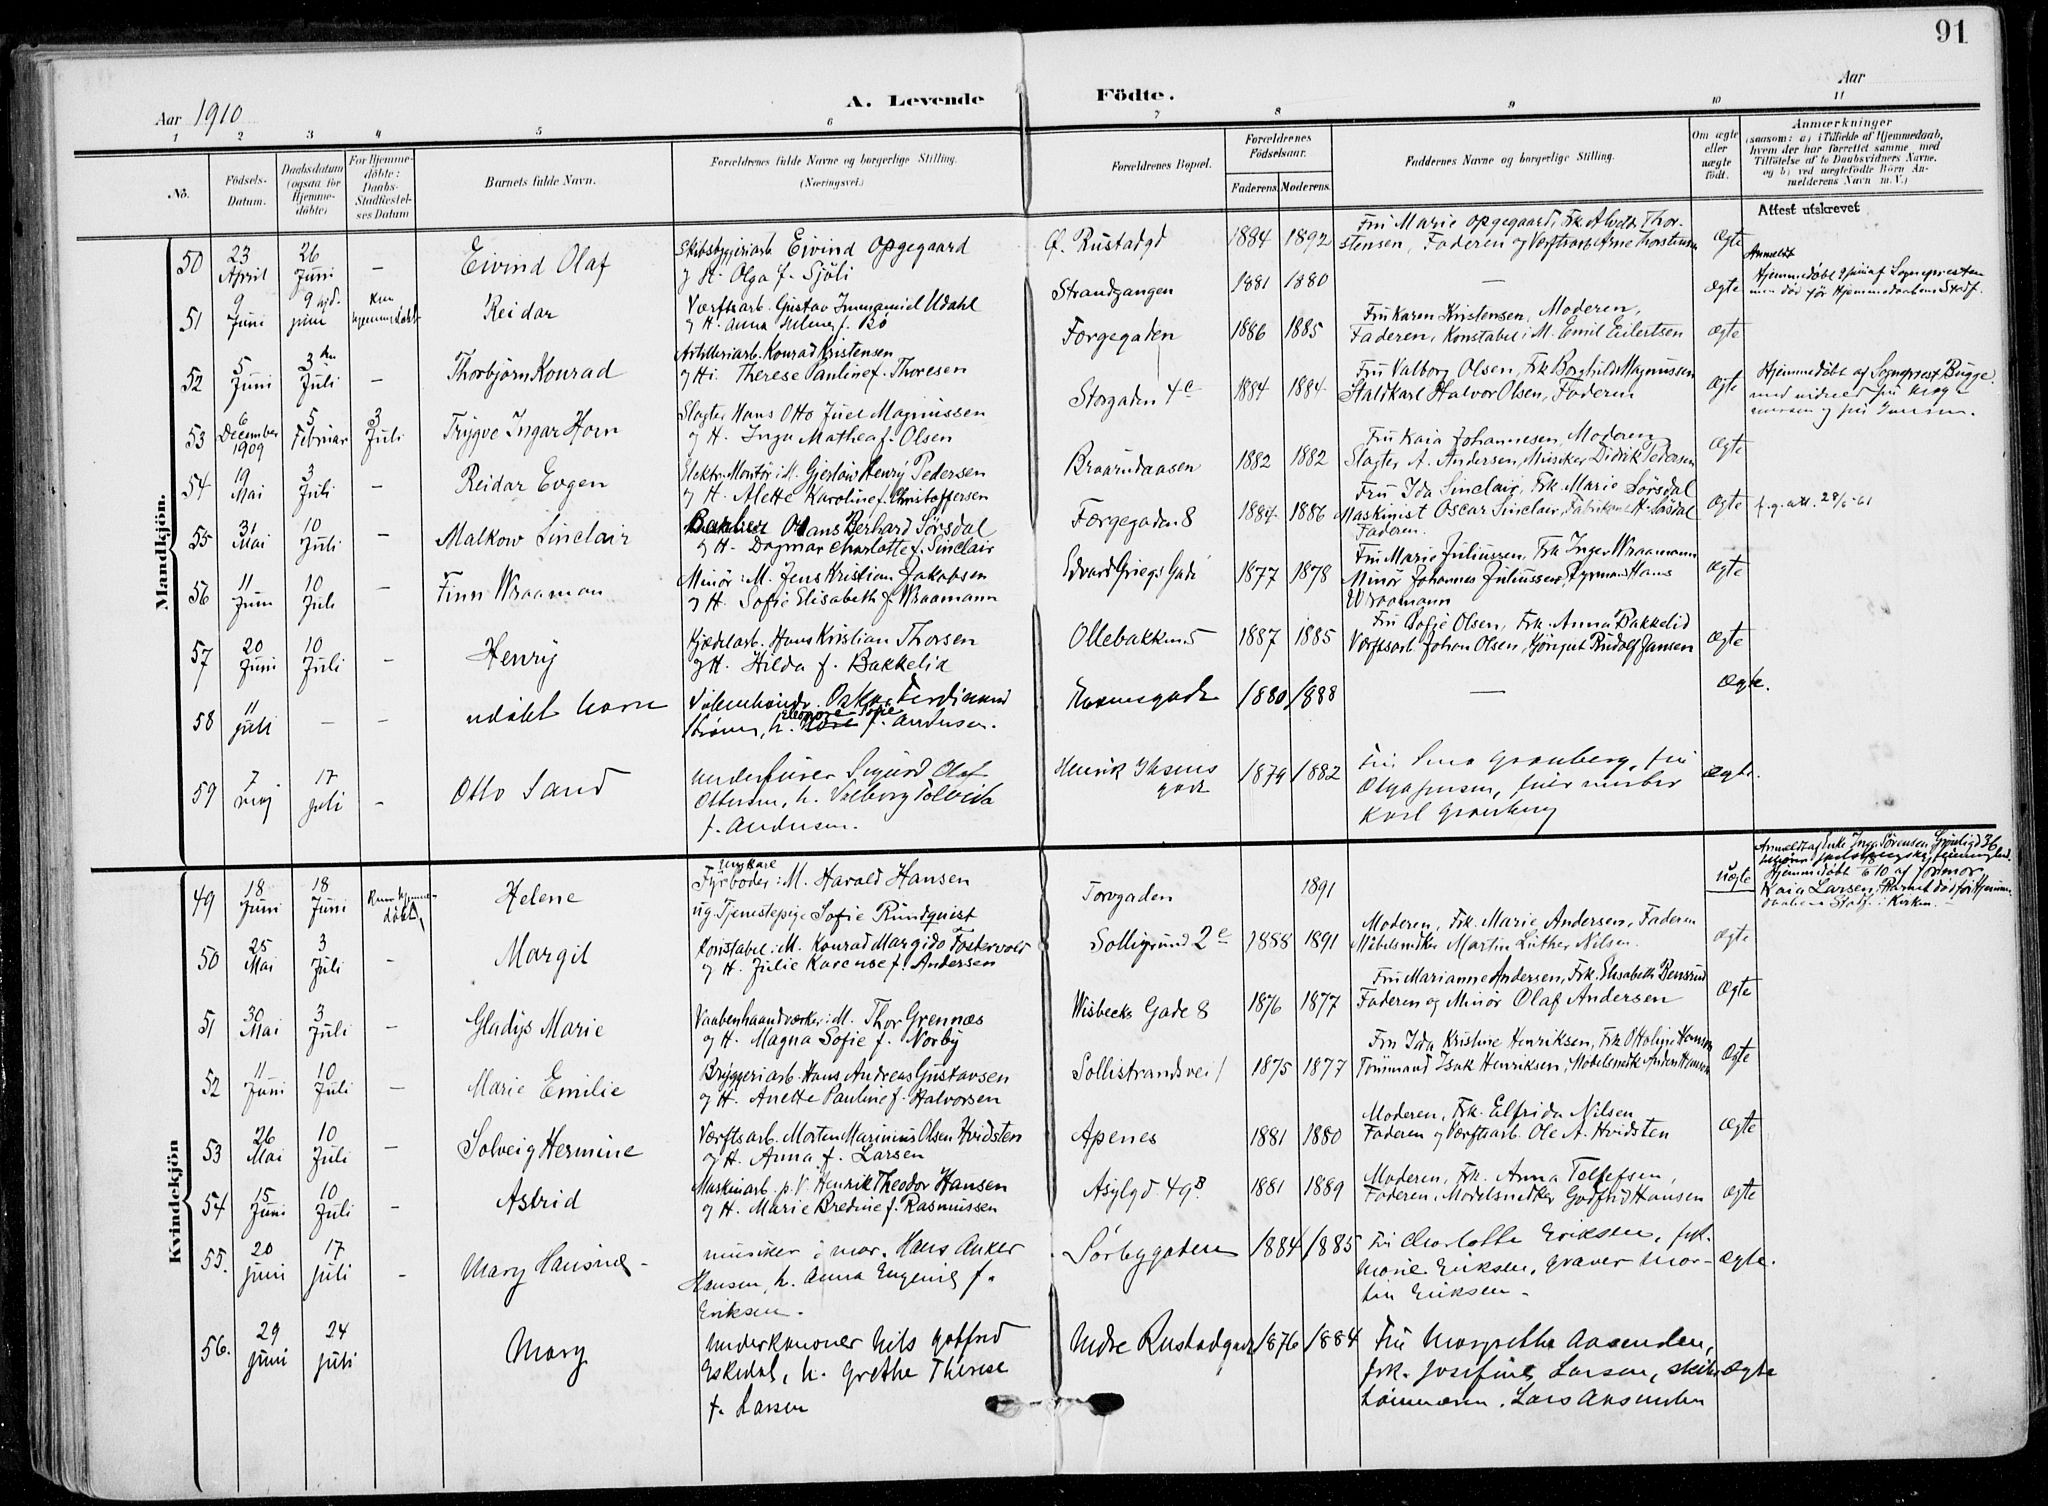 91
Aar 1910
A. Levende Födte.
Aar
1 2 3 4 5 6 7 8 9 10 11
No.
Födsels-Datum.
Daabsdatum (ogsaa for Hjemmedöbte)
For Hjemmedöbte: Daabs-Stadfæstelses Datum
Barnets fulde Navn.
Forældrenes fulde Navne og borgerlige Stilling.
(Næringsvei.)
Forældrenes Bopæl.
Forældrenes Födselsaar.
Faderens. Moderens.
Faddernes Navne og borgerlige Stilling.
Om ægte eller uægte födt.
Anmærkninger
(saasom: a) i Tilfælde af Hjemmedaab, hvem der har forrettet samme, med Tilföielse af to Daabsvidners Navne. og b) ved uægtefödte Börn Anmelderens Navn m. V.)
Attest utskrevet
Mandkjön.
50 23 April 26 Juni – Eivind Olaf
Skibsbyggeriarb. Eivind Opgegaard
og H. Olga f. Sjöli
Ø. Rustadgd 1884 1892
Fru Marie Opgegaard, Frk. Alvilde Thor-
stensen, Faderen og Værftsarb. Arne Thorstensen
Ægte
51 9 Juni 9 juni kun hjemmedøbt Reidar
Værftsarb. Gustav Immanuel Udahl
og H. Anna f. Bö
Strandgangen 1881 1880 – Ægte
Anmeldt
Hjemmedøbt 9 juni af Sognepresten
men død før Hjemmedaabens Stadf.
52 5 Juni 3 Juli – Thorbjørn Konrad
Artilleriarb. Konrad Kristensen
og H. Therese Pauline f. Thoresen
Fargegaden 1886 1885
Fru Karen Kristensen, Moderen,
Faderen, Konstabel i M. Emil Eilertsen
Ægte
53 6 December 1909 5 Februar 3 Juli Trygve Ingar Horn
Slagter Hans Otto Juel Magnussen
og H. Inga Mathea f. Olsen
Storgaden 4c 1884 1884
Fru Valborg Olsen, Frk Borghild Magnussen
Staldkarl Halvor Olsen, Faderen
Ægte
Hjemmedøbt af Sogneprest Bugge
med vidner fru
og fru Jensen.
54 19 Mai 3 Juli – Reidar Evgen
Elektr. Montör i M. Henry Pedersen
og H. Alette Karoline f. Christoffersen
Braarudaasen 1882 1882
Fru Kaia Johannesen, Moderen,
Slagter A. Andersen, Musiker Didrik Pedersen
Ægte
55 31 Mai 10 Juli – Malkow Sinclair
Hans Berhard Sørsdal
og H. Dagmar Charlotte f. Sinclair
Færgegaden 8 1884 1886
Fru Ida Sinclair, Frk. Marie Sørsdal
Maskinist Oscar Sinclair, Fabrikant H. Sørsdal
Faderen.
Ægte f.g. att. 28/6-61
56 11 Juni 10 Juli – Finn Wraaman
Minör i M. Jens Kristian Jakobsen
og H. Sofie Elisabeth f. Wraamann
Edvard Griegs Gade 1877 1878
Fru Marie Juliussen, Frk Inger Wraamann
Minör Johannes Juliussen, Styrmand Hans
Wraamann
Ægte
57 20 Juni 10 Juli – Henry
Kjedelarb. Hans Kristian Thorsen
og H. Hilda f. Bakkelid
Ollebakken 5 1887 1885
Fru Sofie Olsen, Frk. Anna Bakkelid
Værftsarb. Johan Olsen, Rudolf Jansen
Ægte
58 11 juli – – udøbt barn
Oskar Ferdinand
h. Eleonore Sofie f. Andersen.
1880 1888 – Ægte.
59 7 maj 17 juli – Otto Sand
Underfyrer Sigurd Olaf
Ottersen, h. Valborg Tolvida
f. Andersen.
Henrik Ibsens gade 1879 1882
Fru Lena Granberg, fru
Olga Jensen, fyrværker
Karl Granberg
Ægte.
Kvindekjön
49 18 Juni 18 Juni Kun hjemmedøbt Helene
Fyrböder i M. Harald Hansen
ug Tjenestepige Sofie Rundquist
Torvgaden 1891 uægte
Anmeldt af Enke Inga Sørensen
Hjemmedøbt af Jormor
Kaia Larsen, Barnet død før Hjemme-
daabens Stadf. i Kirken.
50 25 Mai 3 Juli – Margit
Konstabel i M. Konrad Margido Fostervold
og H. Julie Karense f. Andersen
Solligrund 2c 1888 1891
Moderen, Frk. Marie Andersen, Faderen
Møbelsnedker Martin Luther Nilsen.
Ægte
51 30 Mai 3 Juli – Gladys Marie
Vaabenhaandværker i M. Thor Grennæs
og H. Magna Sofie f. Norby
Wisbecks Gade 8 1876 1877
Fru Marianne Andersen, Frk. Elisabeth Bensrud
Faderen og Minör Olaf Andersen
Ægte
52 11 Juni 10 Juli – Marie Emilie
Bryggeriarb. Hans Andreas Gustavsen
og H. Anette Pauline f. Halvorsen
Sollistrandsvei 1 1875 1877
Fru Ida Kristine Henriksen, Frk Otholine Hansen
Tömmand Isak Henriksen, Möbelsnedk Anders Hansen
Ægte
53 26 Mai 10 Juli – Solveig Hermine
Værftsarb. Morten Marinius Olsen Hvidsten
og H. Anna f. Larsen
Apenes 1881 1880
Moderen, Frk. Elfrida Nilsen
Faderen og Værftsarb. Ole A. Hvidsten
Ægte
54 15 Juni 10 Juli – Astrid
Maskinarb. p.V. Henrik Theodor Hansen
og H. Marie Bredine f. Rasmussen
Asylgd. 49B 1881 1889
Moderen, Frk. Anna Tollefsen,
Faderen, Modelsnedker Godfrid Hansen
Ægte
55. 20 juni 17 juli – Mary Hansine
musiker i mar. Hans Anker
Hansen, h. Anna Eugenie f.
Eriksen.
Sørbygaten 1884 1885
Fru Charlotte Eriksen, frk.
Marie Eriksen, graver Mar-
tin Eriksen.
Ægte.
56. 29 juni 24 juli Mary
Underkanoner Nils Gotfred
Eskedal, h. Grethe Therese
f. Larsen
Nedre Rustadgade 1876 1884
Fru Margrethe Aasenden,
frk. Josefine Larsen, skibs-
tømmerm. Lars Aasenden
Ægte